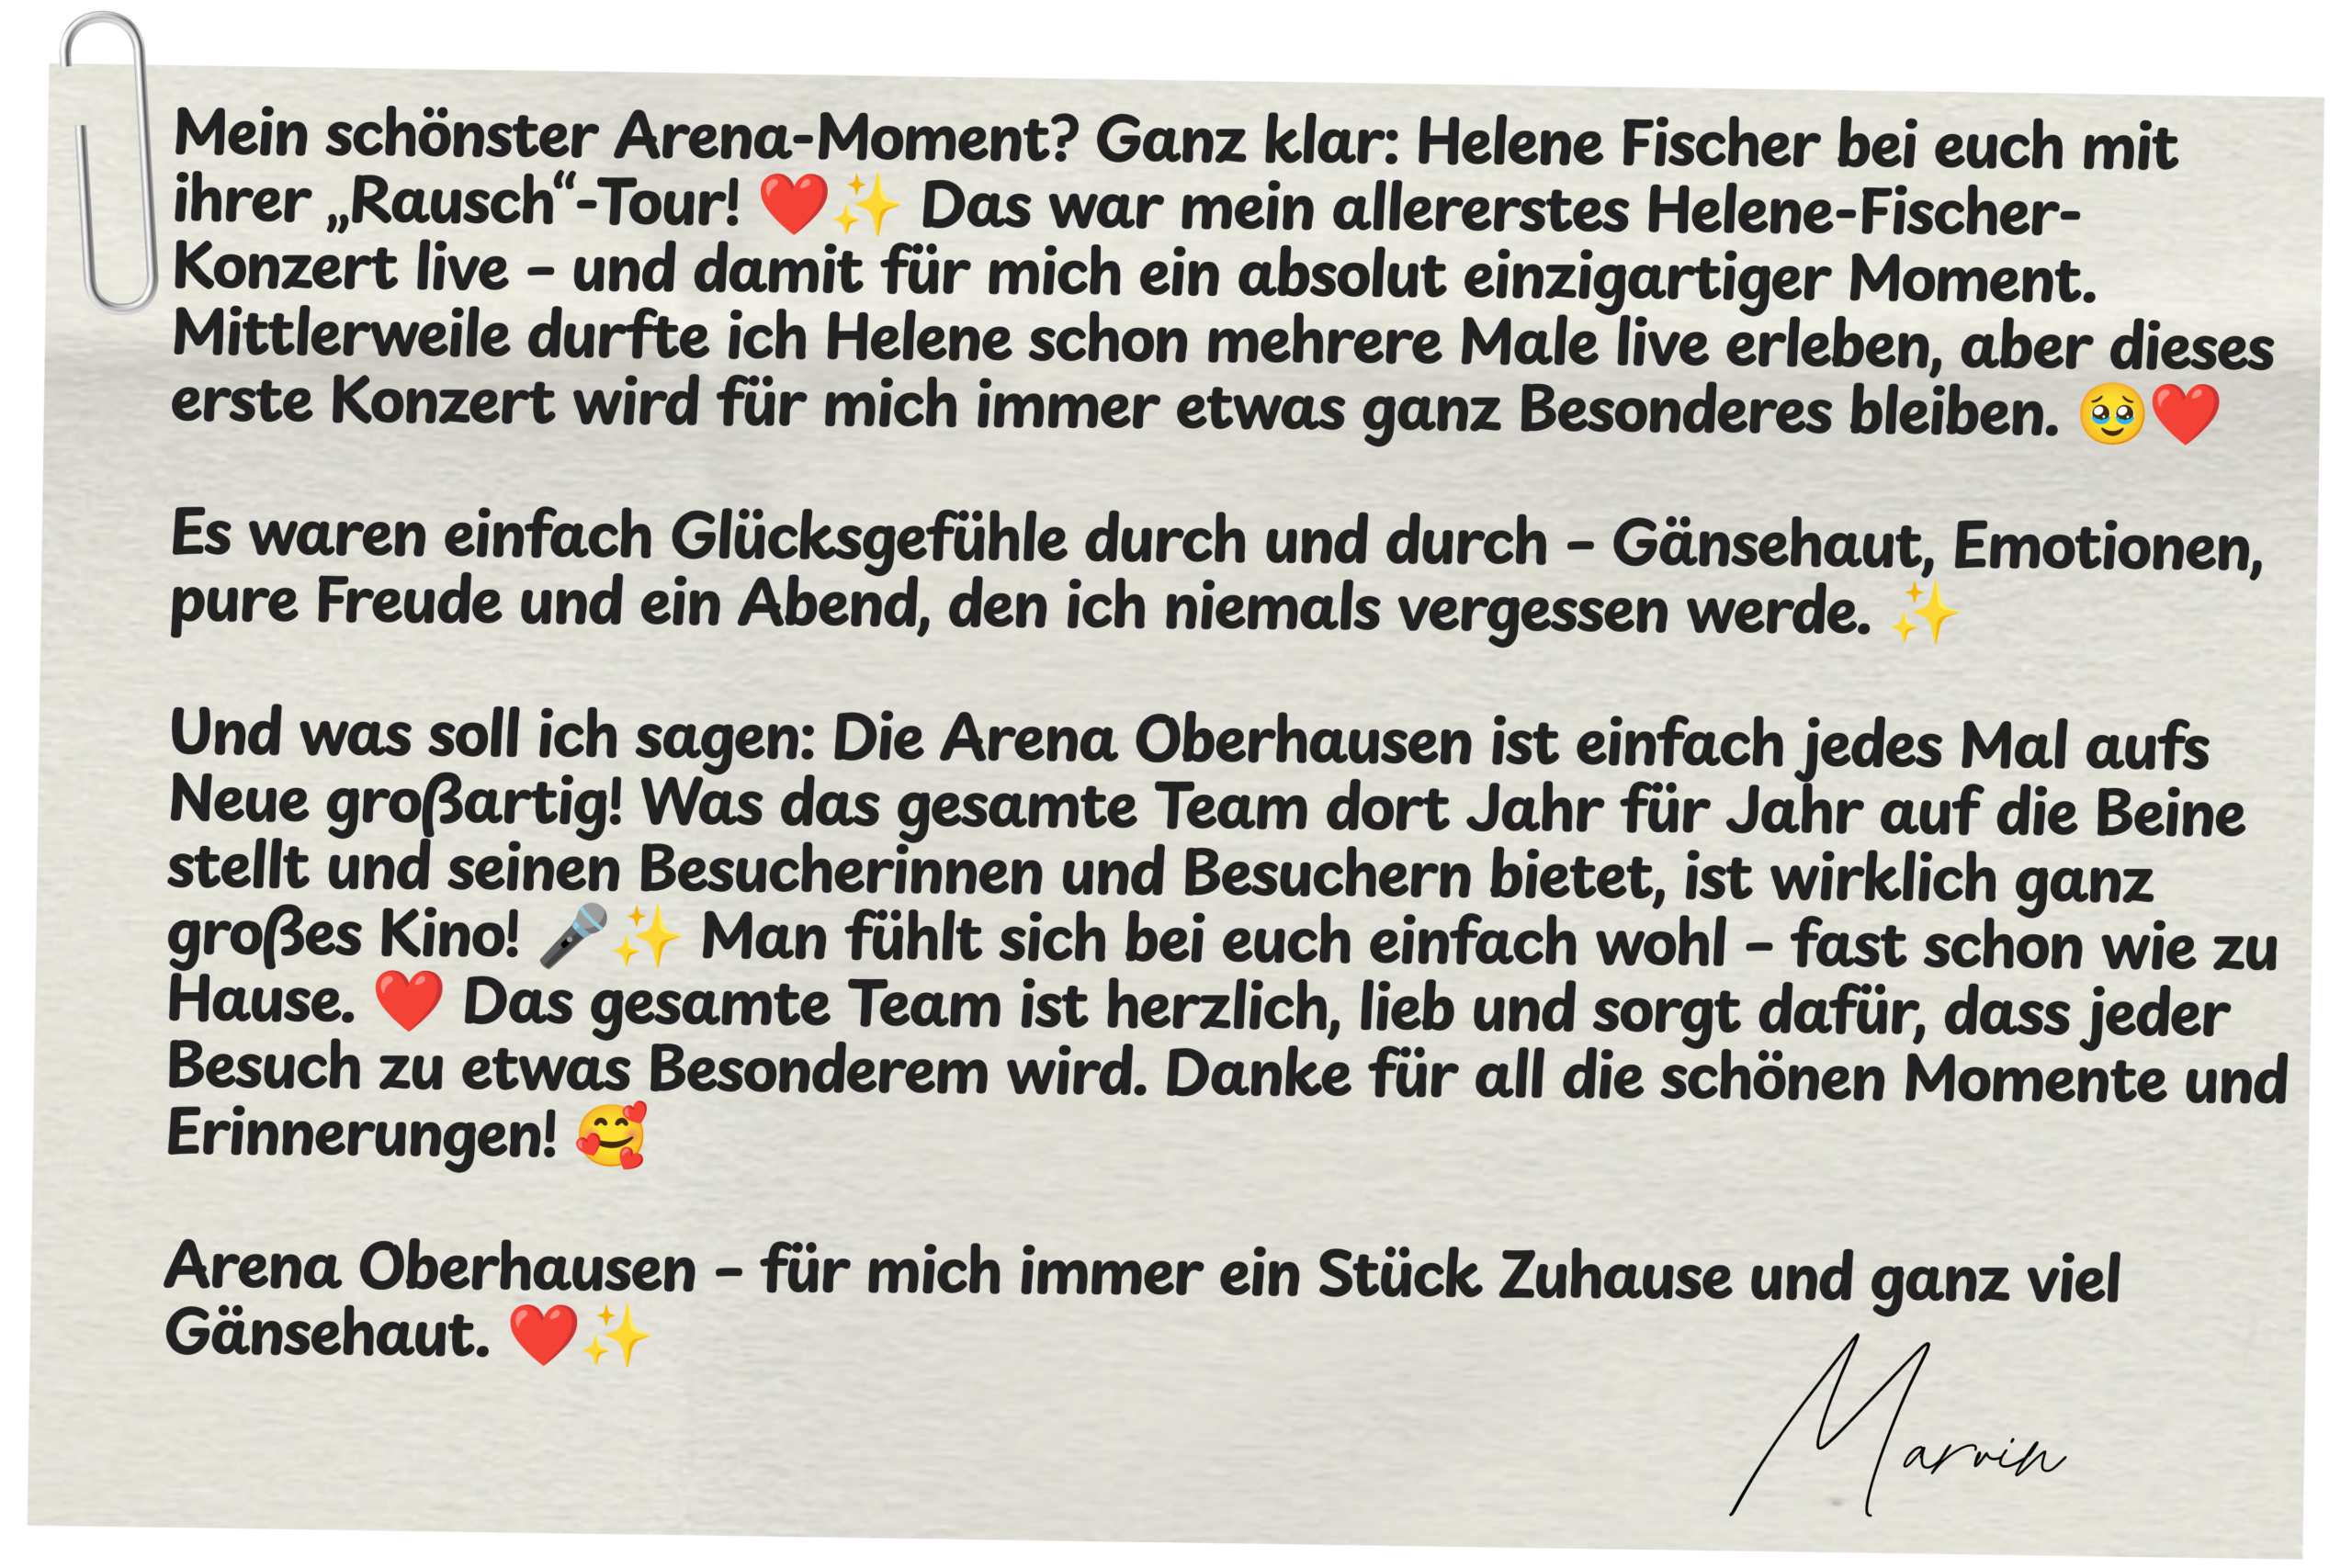 Mein schönster Arena-Moment? Ganz klar: Helene Fischer bei euch mit
ihrer „Rausch“-Tour! ❤️✨ Das war mein allererstes Helene-Fischer-
Konzert live – und damit für mich ein absolut einzigartiger Moment.
Mittlerweile durfte ich Helene schon mehrere Male live erleben, aber dieses
erste Konzert wird für mich immer etwas ganz Besonderes bleiben. 🥹❤️
Es waren einfach Glücksgefühle durch und durch – Gänsehaut, Emotionen,
pure Freude und ein Abend, den ich niemals vergessen werde. ✨
Und was soll ich sagen: Die Arena Oberhausen ist einfach jedes Mal aufs
Neue großartig! Was das gesamte Team dort Jahr für Jahr auf die Beine
stellt und seinen Besucherinnen und Besuchern bietet, ist wirklich ganz
großes Kino! 🎤✨ Man fühlt sich bei euch einfach wohl – fast schon wie zu
Hause. ❤️ Das gesamte Team ist herzlich, lieb und sorgt dafür, dass jeder
Besuch zu etwas Besonderem wird. Danke für all die schönen Momente und
Erinnerungen! 🥰
Arena Oberhausen – für mich immer ein Stück Zuhause und ganz viel
Gänsehaut. ❤️✨
Marvin